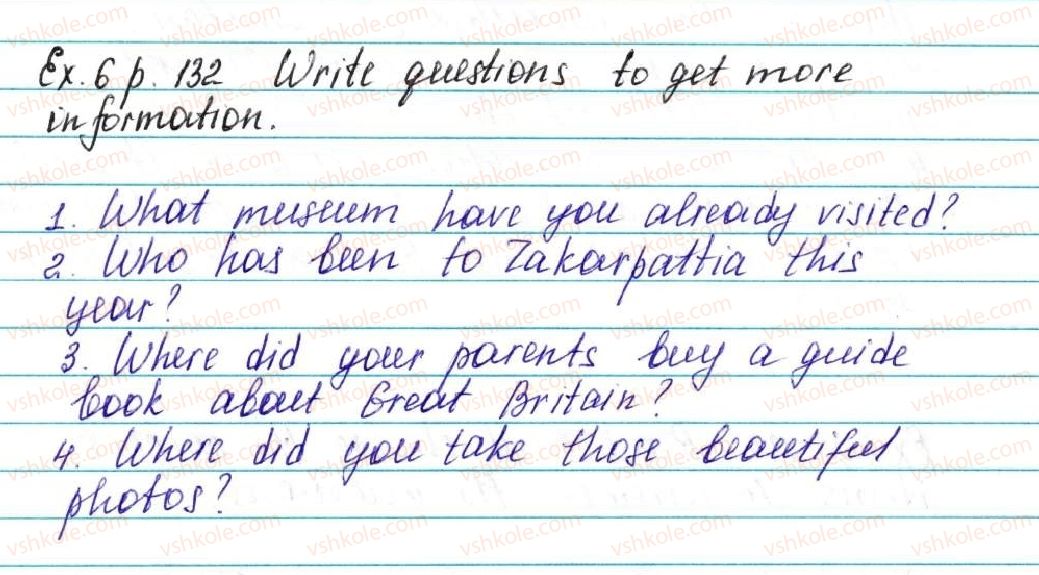 Ex. 6 p. 132 Write questions to get more
information.
1. What museum have you already visited?
2. Who has been to Zakarpattia this
year?
3. Where did your parents buy a guide
book about Great Britain?
4. Where did you take those beautiful
photos?